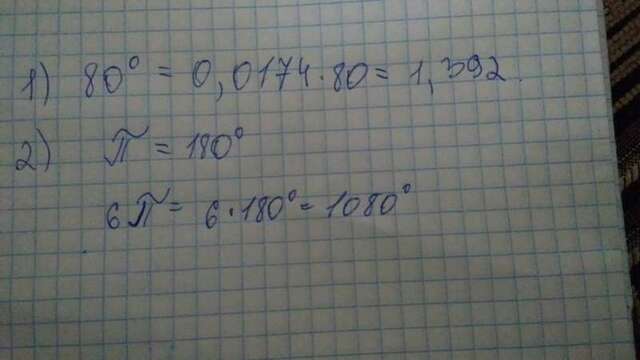 1) 80° = 0,0174·80 = 1,392.
2) π = 180°
6π = 6·180° = 1080°